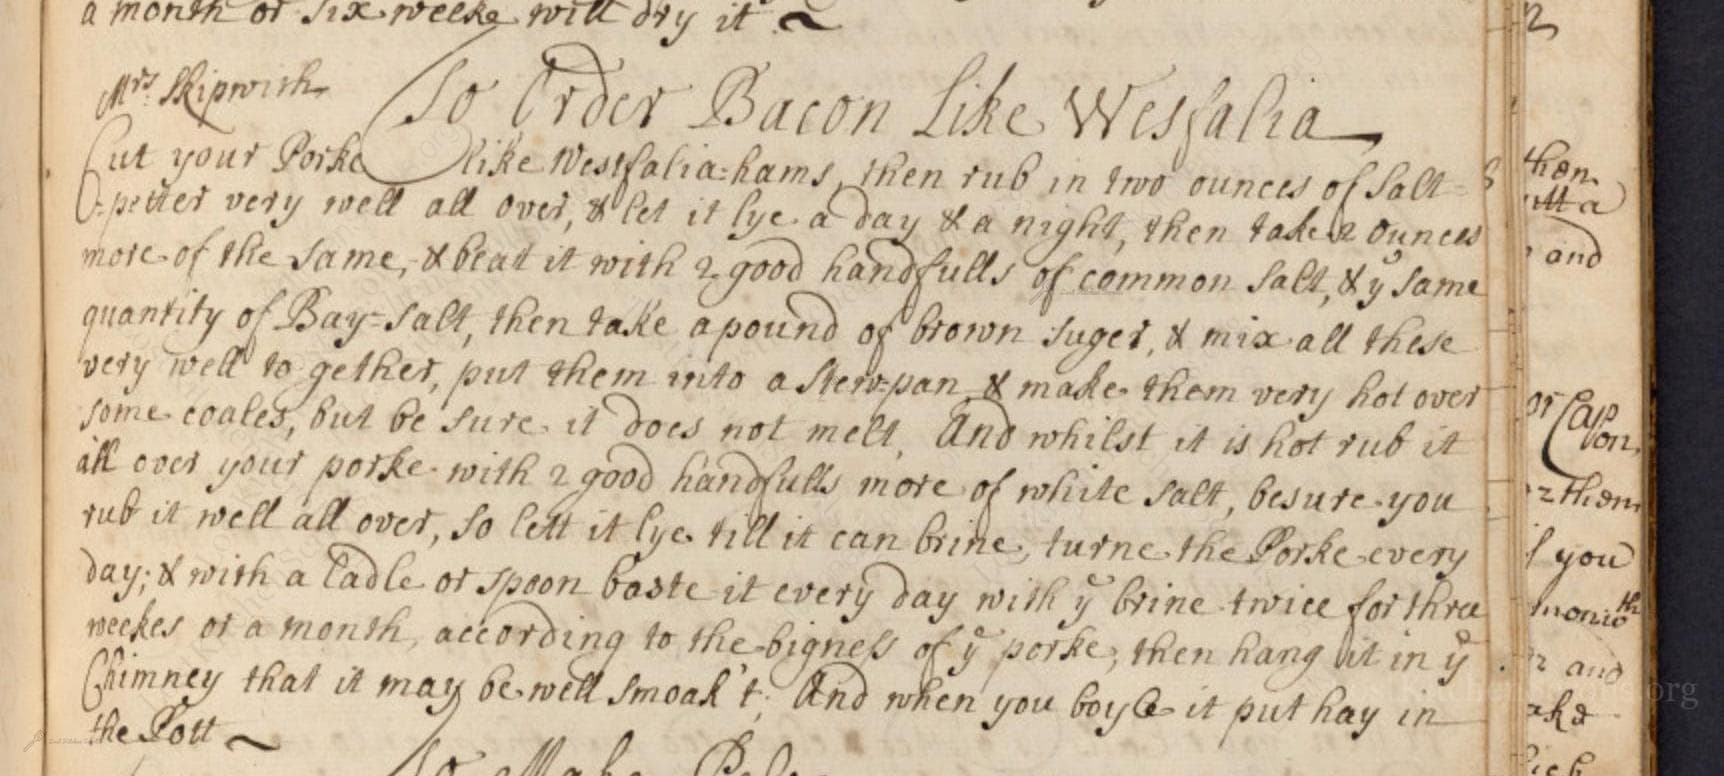 a month or six weeke will dry it
Mrs: Skipwith
To Order Bacon Like Wesfalia
Cut your Porke like Westfalia=hams, then rub in two ounces of Salt=
=petter very well all over, & let it lye a day & a night, then take 2 Ounces
more of the same, & beat it with 2 good handfulls of common Salt, & ye same
quantity of Bay=Salt, then take a pound of brown suger, & mix all these
very well to gether, put them into a Stew=pan, & make them very hot over
some coales, but be sure it does not melt, And whilst it is hot rub it
all over your porke with 2 good handfulls more of white salt, besure you
rub it well all over, so lett it lye till it can brine, turne the Porke every
day; & with a Ladle or spoon baste it every day with ye brine twice for three
weekes or a month, according to the bigness of ye porke, then hang it in ye
Chimney that it may be well smoak't; And when you boyle it put hay in
the Pott
To Make
then
and
or Capon
them
you
month
and
ake